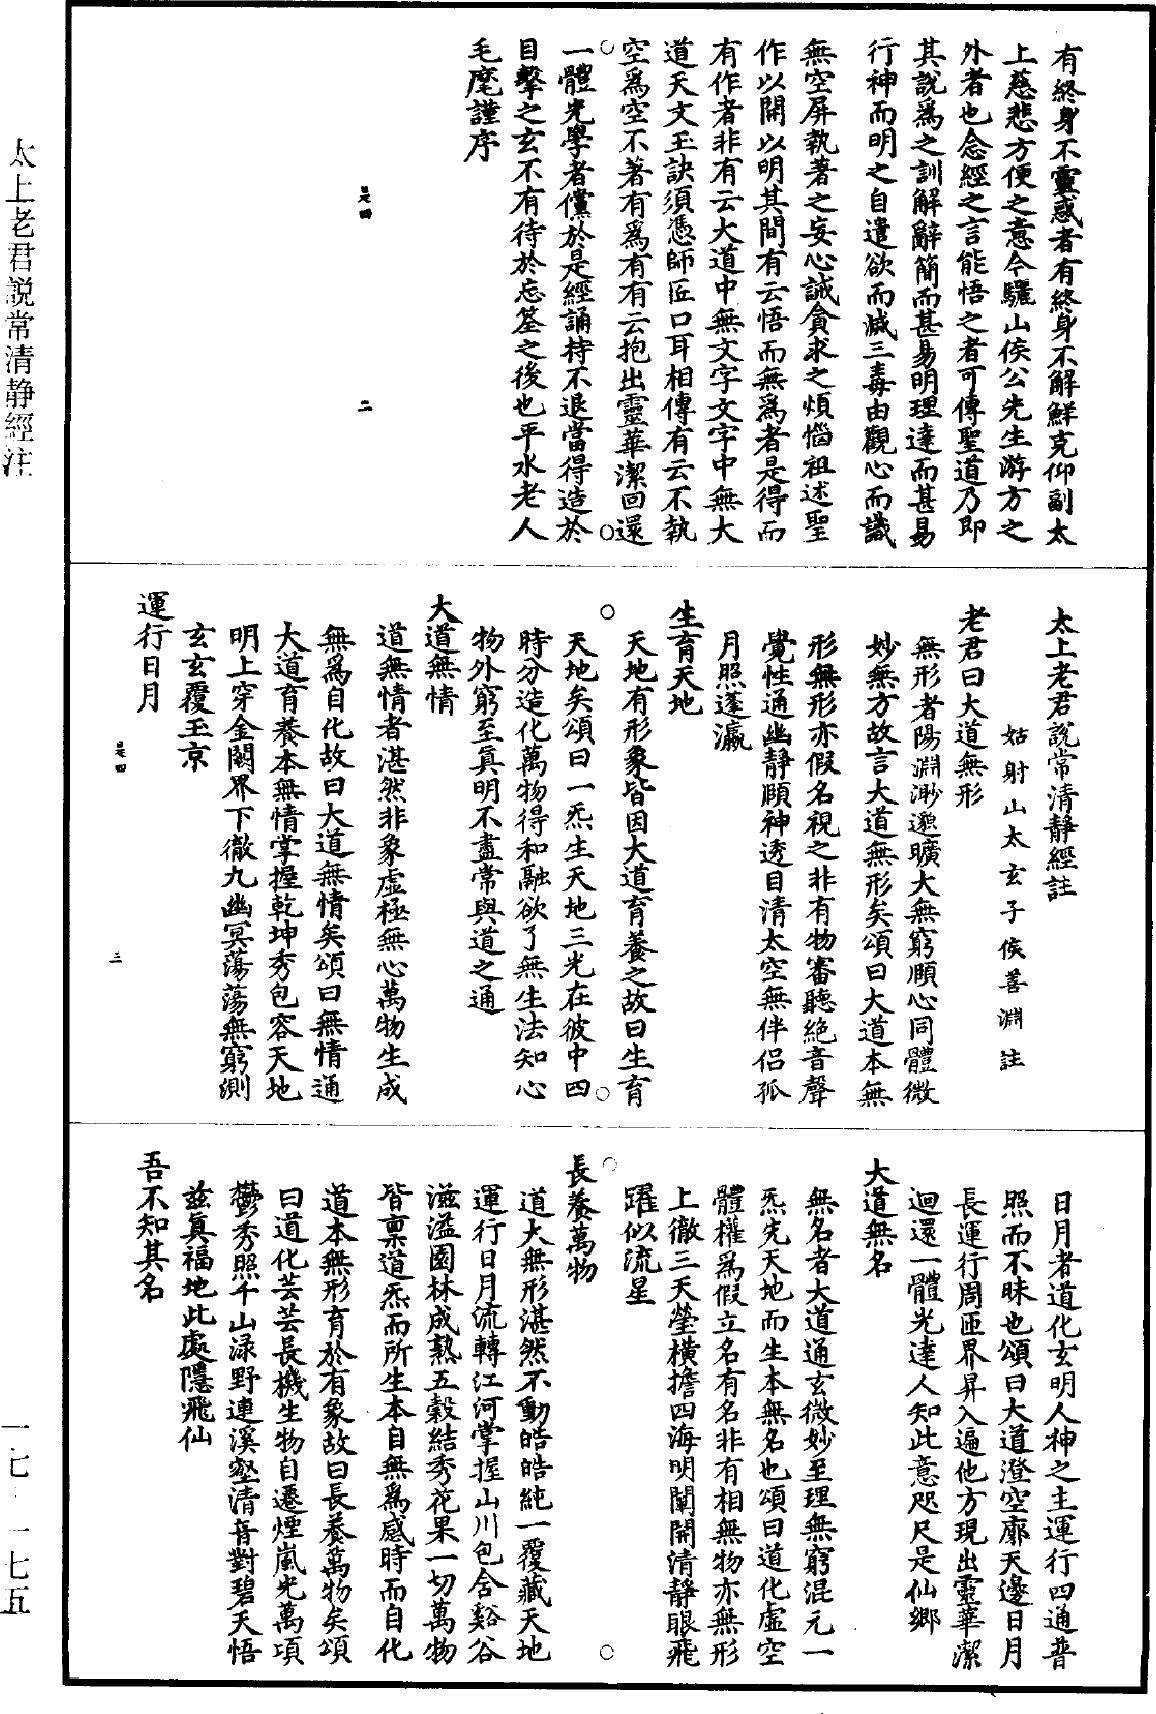 太上老君說常清靜經注
一七・一七五
有終身不靈惑者有終身不解鮮克仰副太
上慈悲方便之意今驪山侯公先生游方之
外者也念經之言能悟之者可傳聖道乃即
其說爲之訓解辭簡而甚易明理達而甚易
行神而明之自遣欲而滅三毒由觀心而識
無空屏執著之妄心誡貪求之煩惱祖述聖
作以開以明其間有云悟而無爲者是得而
有作者非有云大道中無文字文字中無大
道天文玉訣須憑師匠口耳相傳有云不執
空爲空不著有爲有有云抱出靈華潔回還
一體光學者儻於是經誦持不退當得造於
目擊之玄不有待於忘筌之後也平水老人
毛麾謹序
是四
二
太上老君說常清靜經註
姑射山太玄子侯善淵註
老君曰大道無形
無形者陽淵渺邈曠大無窮願心同體微
妙無方故言大道無形矣頌曰大道本無
形無形亦假名視之非有物審聽絶音聲
覺性通幽靜願神透目清太空無伴侶孤
月照蓬瀛
生育天地
天地有形象皆因大道育養之故曰生育
天地矣頌曰一炁生天地三光在彼中四
時分造化萬物得和融欲了無生法知心
物外窮至真明不盡常與道之通
大道無情
道無情者湛然非象虛極無心萬物生成
無爲自化故曰大道無情矣頌曰無情通
大道育養本無情掌握乾坤秀包容天地
明上穿金闕界下徹九幽冥蕩蕩無窮測
玄玄覆玉京
運行日月
是四
三
日月者道化玄明人神之主運行四通普
照而不昧也頌曰大道澄空廓天邊日月
長運行周匝界昇入遍他方現出靈華潔
迴還一體光達人知此意咫尺是仙鄉
大道無名
無名者大道通玄微妙至理無窮混元一
炁先天地而生本無名也頌曰道化虛空
體權爲假立名有名非有相無物亦無形
上徹三天瑩橫擔四海明闡開清靜眼飛
躍似流星
長養萬物
道大無形湛然不動皓皓純一覆藏天地
運行日月流轉江河掌握山川包含谿谷
滋溢園林成熟五穀結秀花果一切萬物
皆稟道炁而所生本自無爲感時而自化
道本無形育於有象故曰長養萬物矣頌
曰道化芸芸長機生物自遷煙嵐光萬頃
鬱秀照千山淥野連溪壑清音對碧天悟
茲真福地此處隱飛仙
吾不知其名